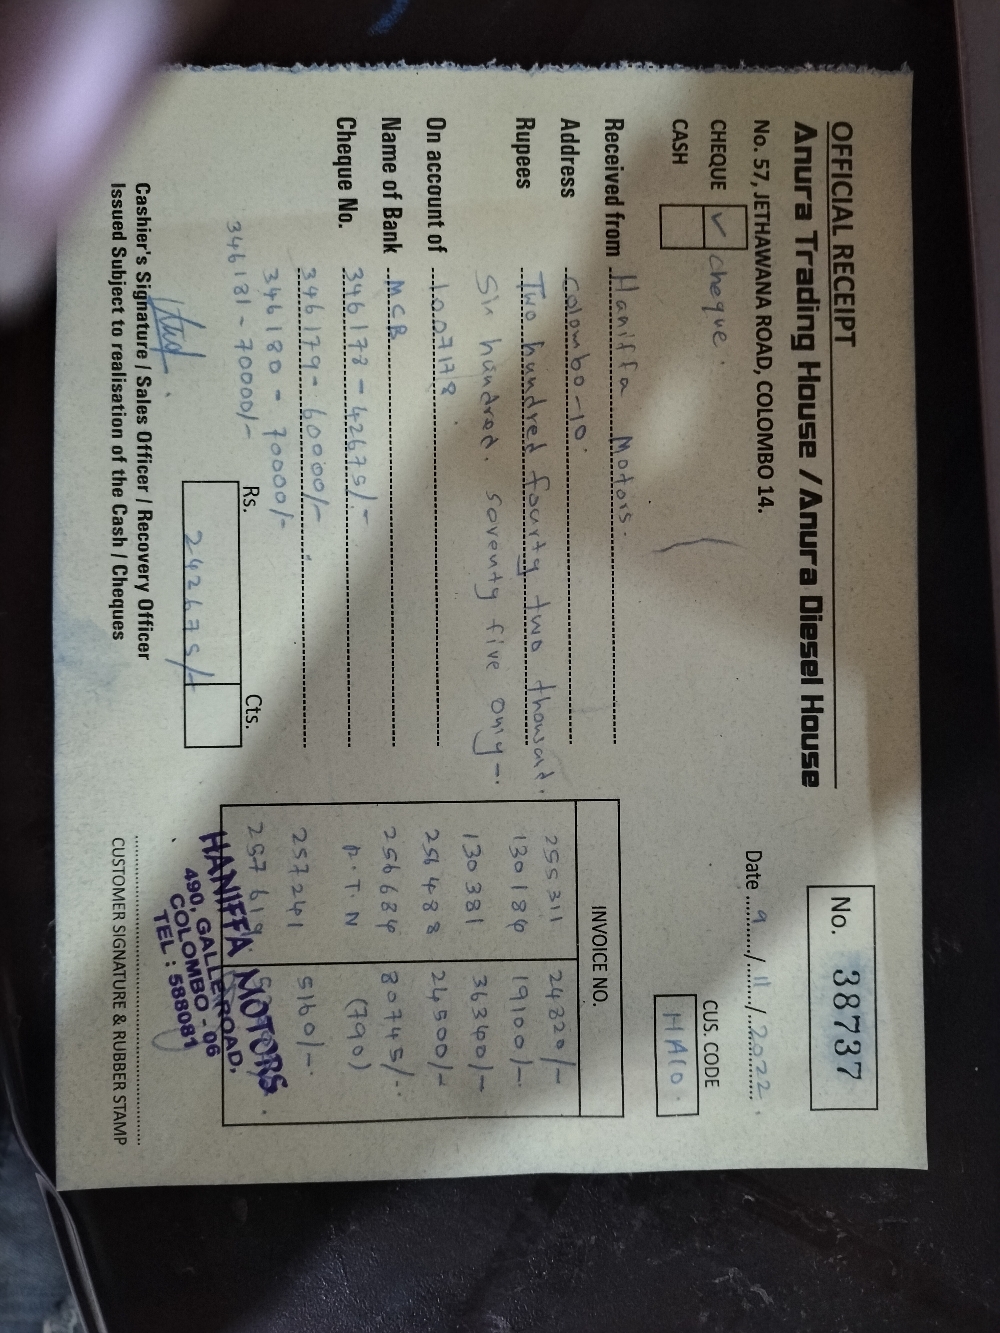 OFFICIAL RECEIPT
Anura Trading House / Anura Diesel House
No. 57, JETHAWANA ROAD, COLOMBO 14.
No. 38737
Date 9/11/2022.
CHEQUE ✓ cheque.
CASH
CUS. CODE
HA10.
Received from Haniffa Motors.
Address Colombo-10.
Rupees Two hundred fourty two thousat.
Six hundred. seventy five only -.
On account of 1007178
Name of Bank MCB
Cheque No. 346178 - 42675/-
346179 - 60000/-
346180 - 70000/-
346181 - 70000/-
INVOICE NO.
255311 24820/-
130184 19100/-
130381 36340/-
256488 24500/-
256684 80745/-
R.T.N (790)
257241 5160/-
257619
Rs. Cts.
242675/-
Cashier's Signature / Sales Officer / Recovery Officer
Issued Subject to realisation of the Cash / Cheques
HANIFFA MOTORS
490, GALLE ROAD,
COLOMBO - 06
TEL : 588081
CUSTOMER SIGNATURE & RUBBER STAMP